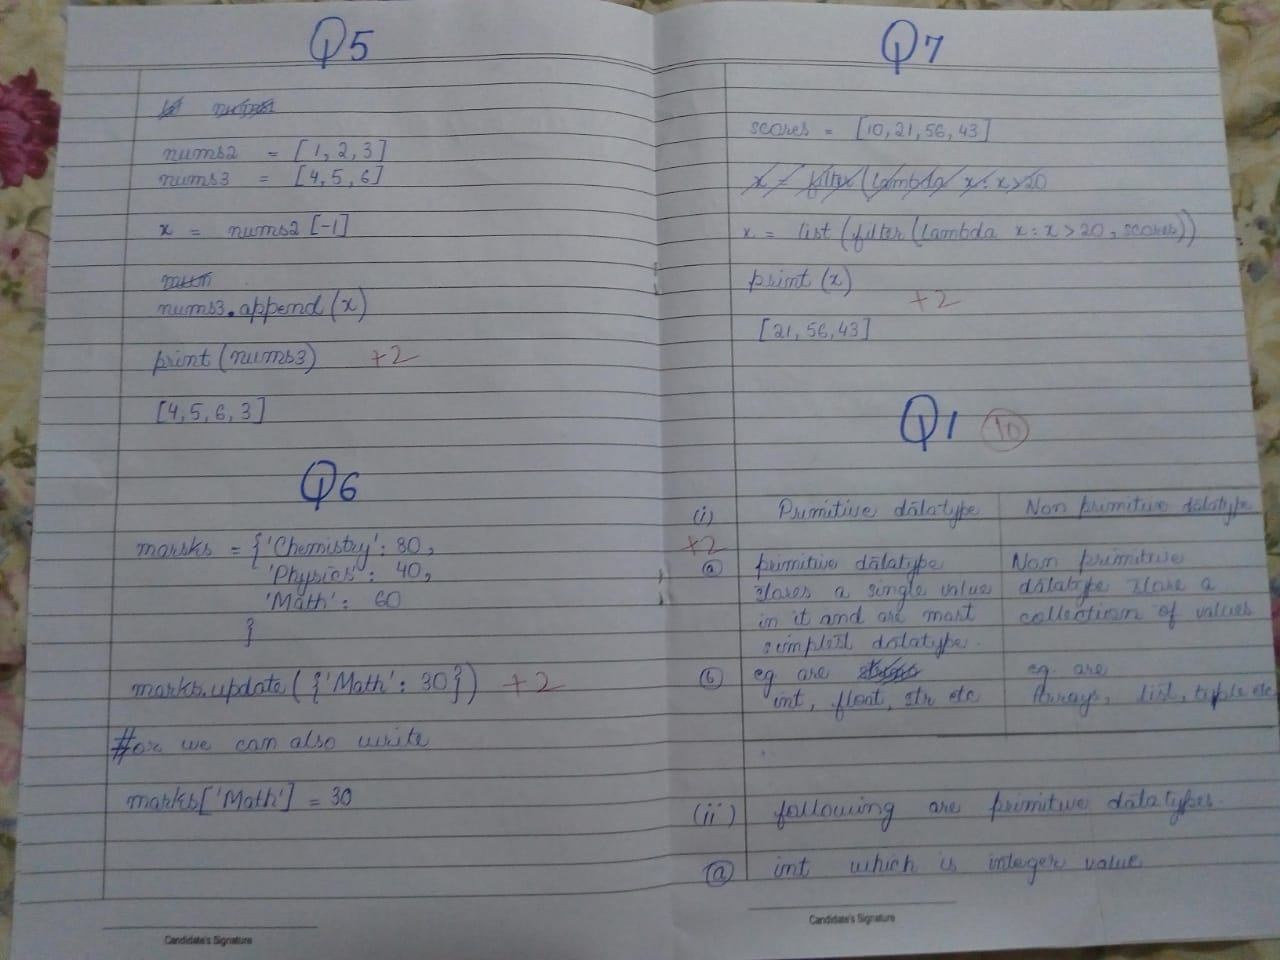 Q5
nums2 = [1, 2, 3]
nums3 = [4, 5, 6]
x = nums2 [-1]
nums3.append(x)
print (nums3) +2
[4, 5, 6, 3]
Q6
marks = {'Chemistry': 80,
'Physics': 40,
'Math': 60
}
marks.update({'Math': 30}) +2
#or we can also write
marks['Math'] = 30
Candidate's Signature
Q7
scores = [10, 21, 56, 43]
x = filter (lambda x: x>20
x = list (filter (lambda x: x > 20, scores))
print (x)
+2
[21, 56, 43]
Q1 10
(i) Primitive datatype Non primitive datatype
+2
(a) primitive datatype Non primitive
stores a single value datatype store a
in it and are most collection of values
simplest datatype.
(b) eg are eg. are
int, float, str etc Arrays, list, tuple etc
(ii) following are primitive datatypes.
(a) int which is integer value
Candidate's Signature